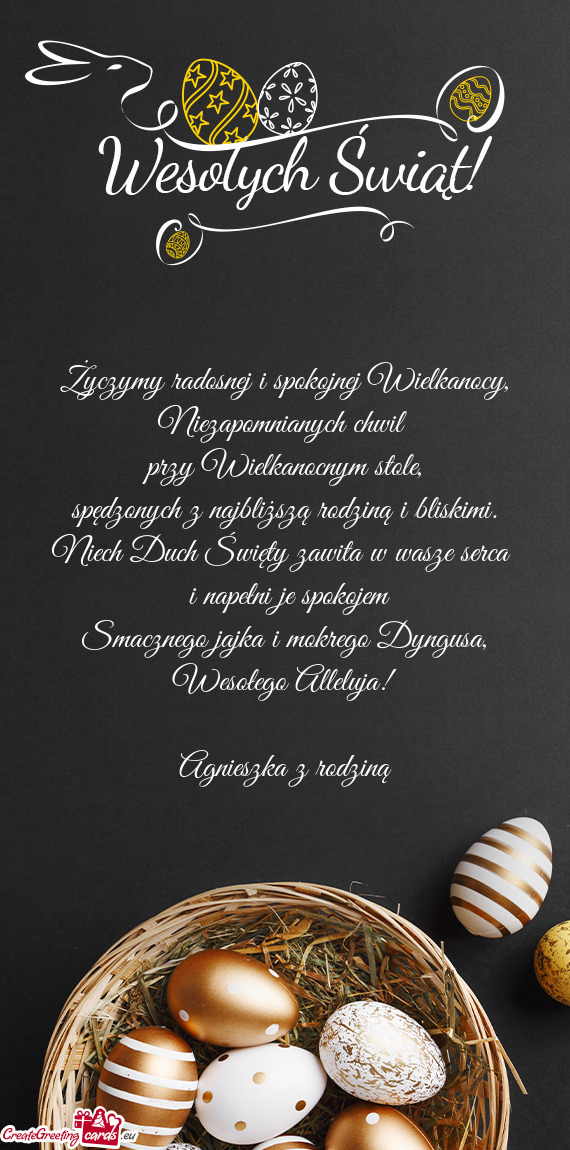 Wesołych Świąt!
Życzymy radosnej i spokojnej Wielkanocy,
Niezapomnianych chwil
przy Wielkanocnym stole,
spędzonych z najbliższą rodziną i bliskimi.
Niech Duch Święty zawita w wasze serca
i napełni je spokojem
Smacznego jajka i mokrego Dyngusa,
Wesołego Alleluja!
Agnieszka z rodziną
CreateGreetingcards.eu